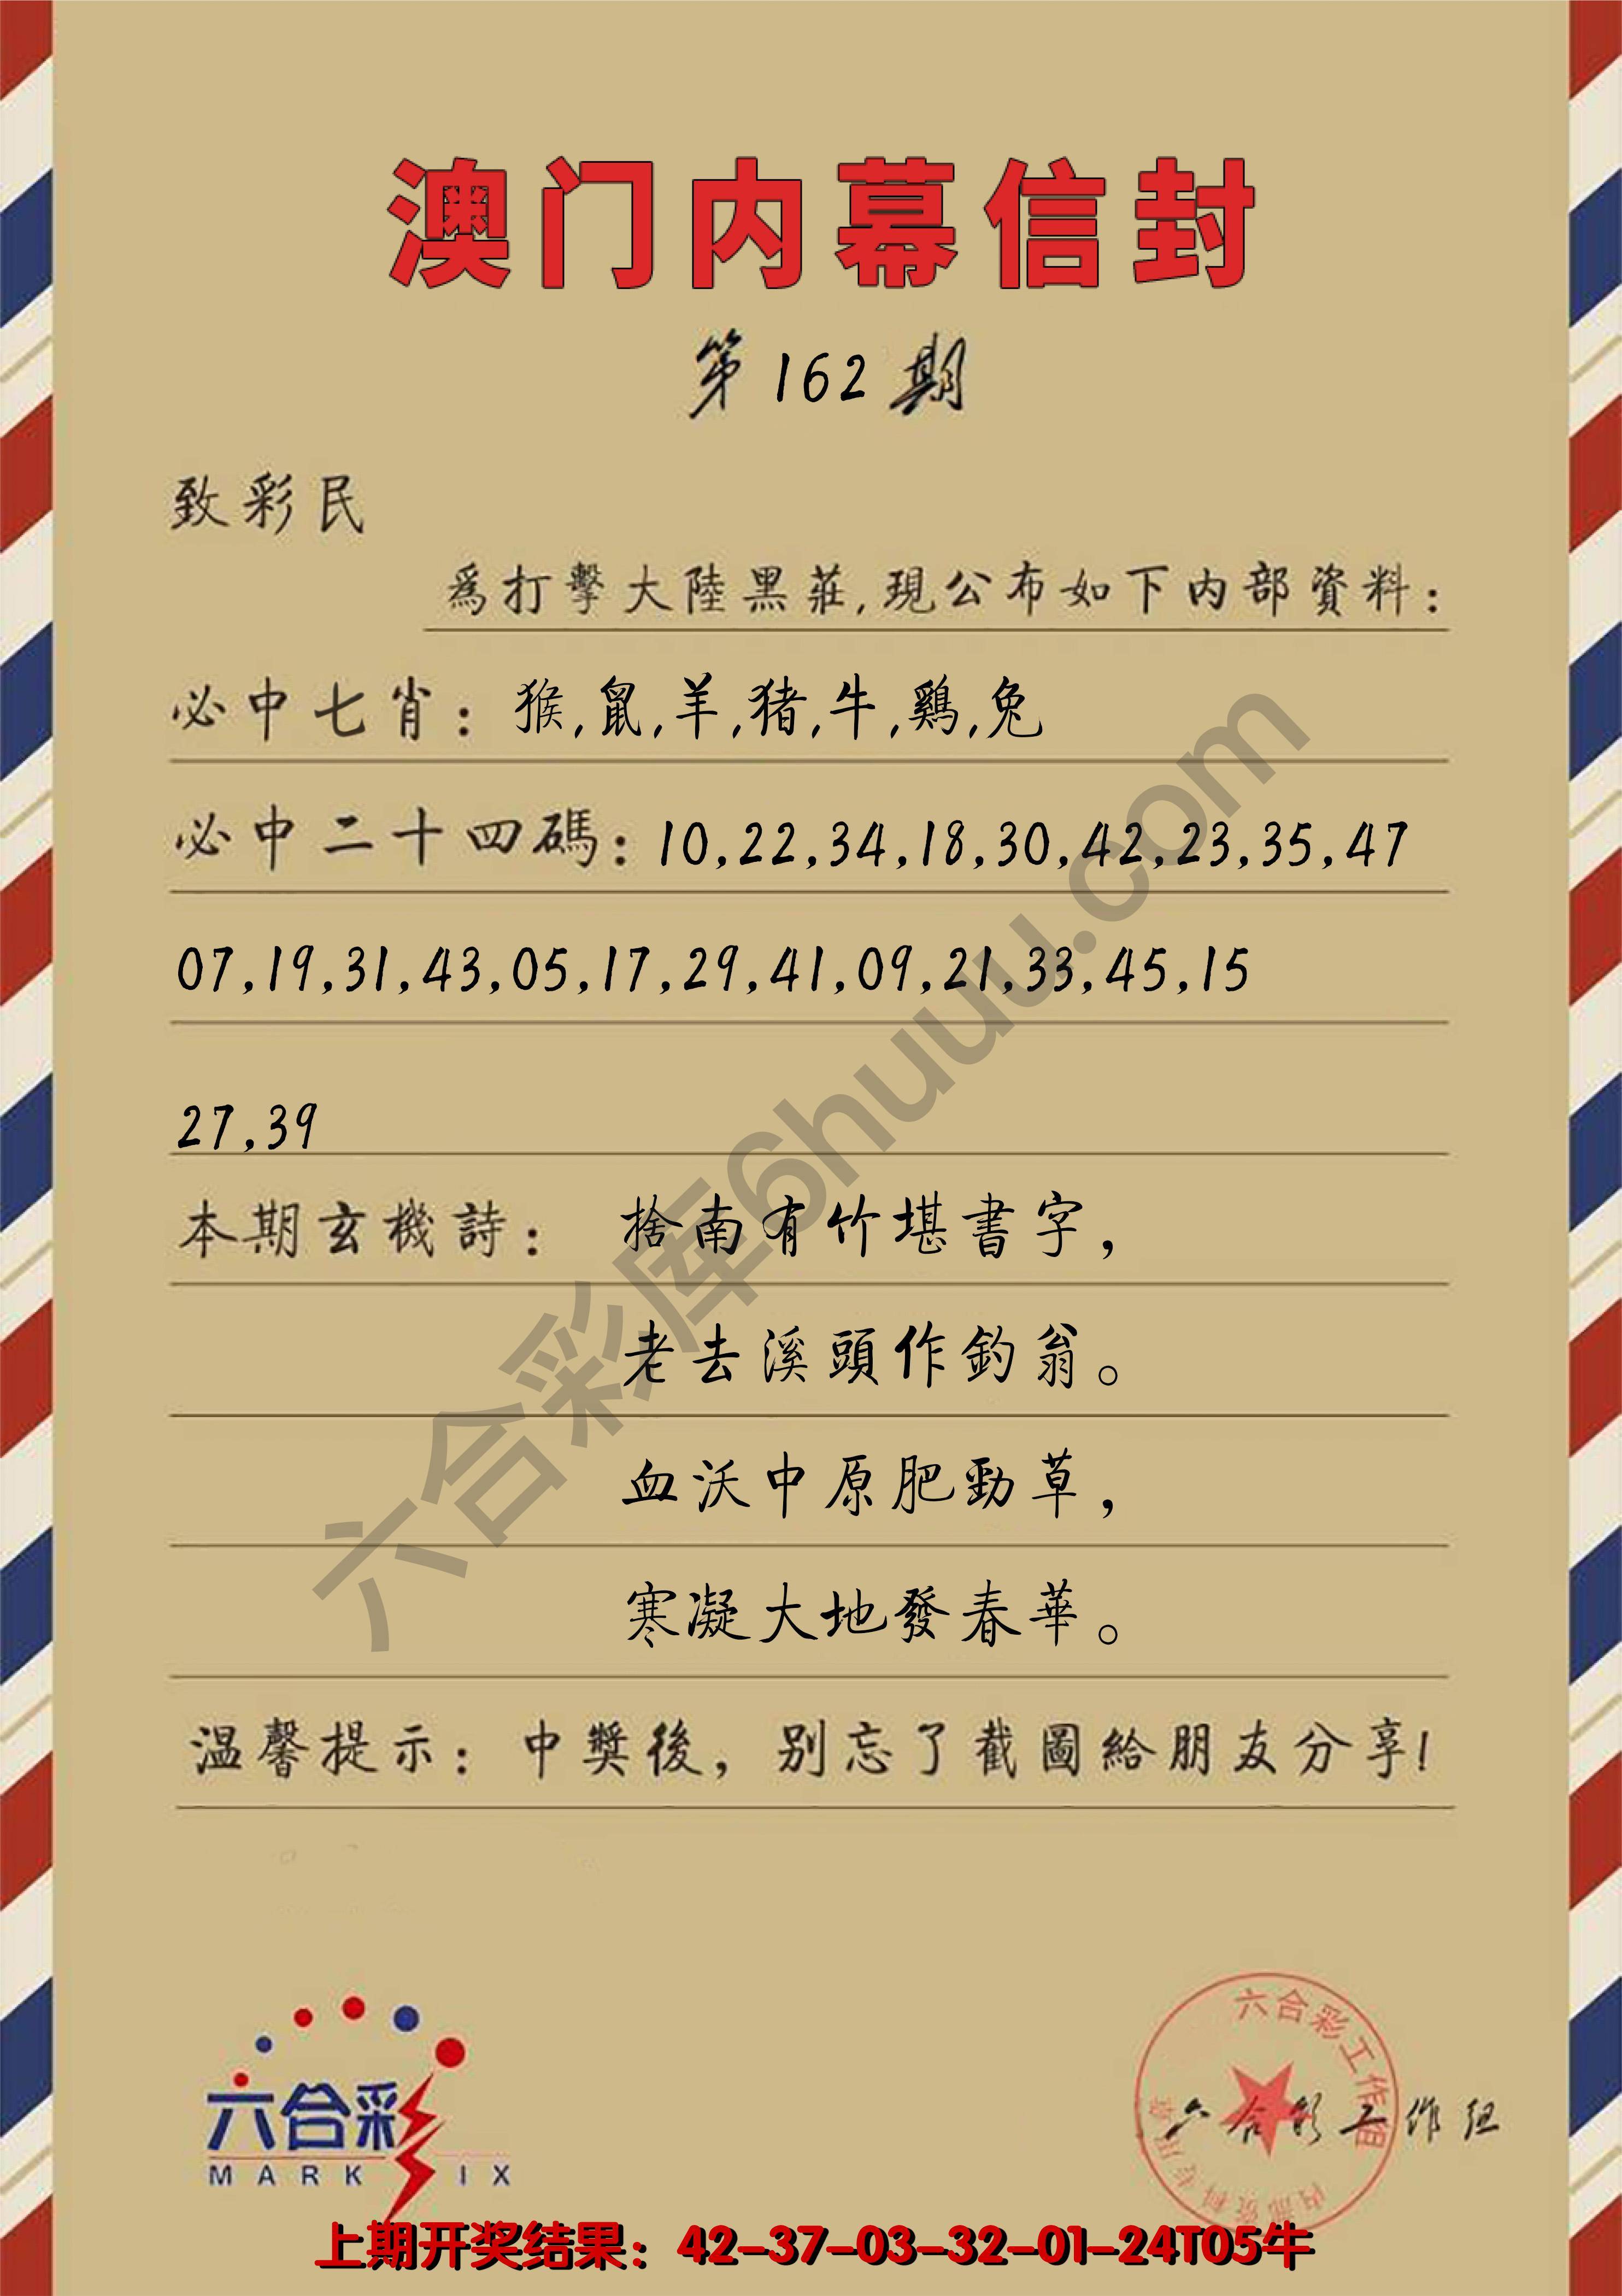 澳门内幕信封
第162期
致彩民
爲打擊大陸黑莊,現公布如下内部資料:
必中七肖: 猴,鼠,羊,猪,牛,鷄,兔
必中二十四碼: 10,22,34,18,30,42,23,35,47
07,19,31,43,05,17,29,41,09,21,33,45,15
27,39
本期玄機詩: 捨南有竹堪書字,
老去溪頭作釣翁。
血沃中原肥勁草,
寒凝大地發春華。
温馨提示: 中獎後, 别忘了截圖給朋友分享!
六合彩库6huuu.com
六合彩
MARK IX
六合彩工作组
内部资料专用章
六合彩工作组
上期开奖结果: 42-37-03-32-01-24T05牛